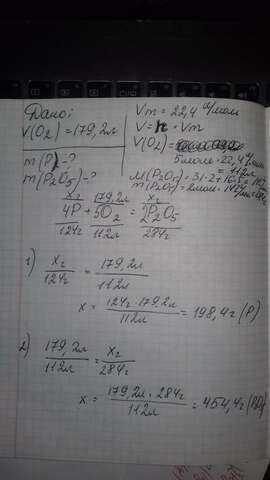 Дано:
V(O₂) = 179,2л
m(P) - ?
m(P₂O₅) - ?
Vm = 22,4 л/моль
V = n · Vm
V(O₂) =
5моль · 22,4 л/моль
= 112л
m(P₂O₅) = 2моль · 142
xг 179,2л xг
4P + 5O₂ = 2P₂O₅
124г 112л 284г
1) xг/124г = 179,2л/112л
x = 124г · 179,2л/112л = 198,4г (P)
2) 179,2л/112л = xг/284г
x = 179,2л · 284г/112л = 454,4г